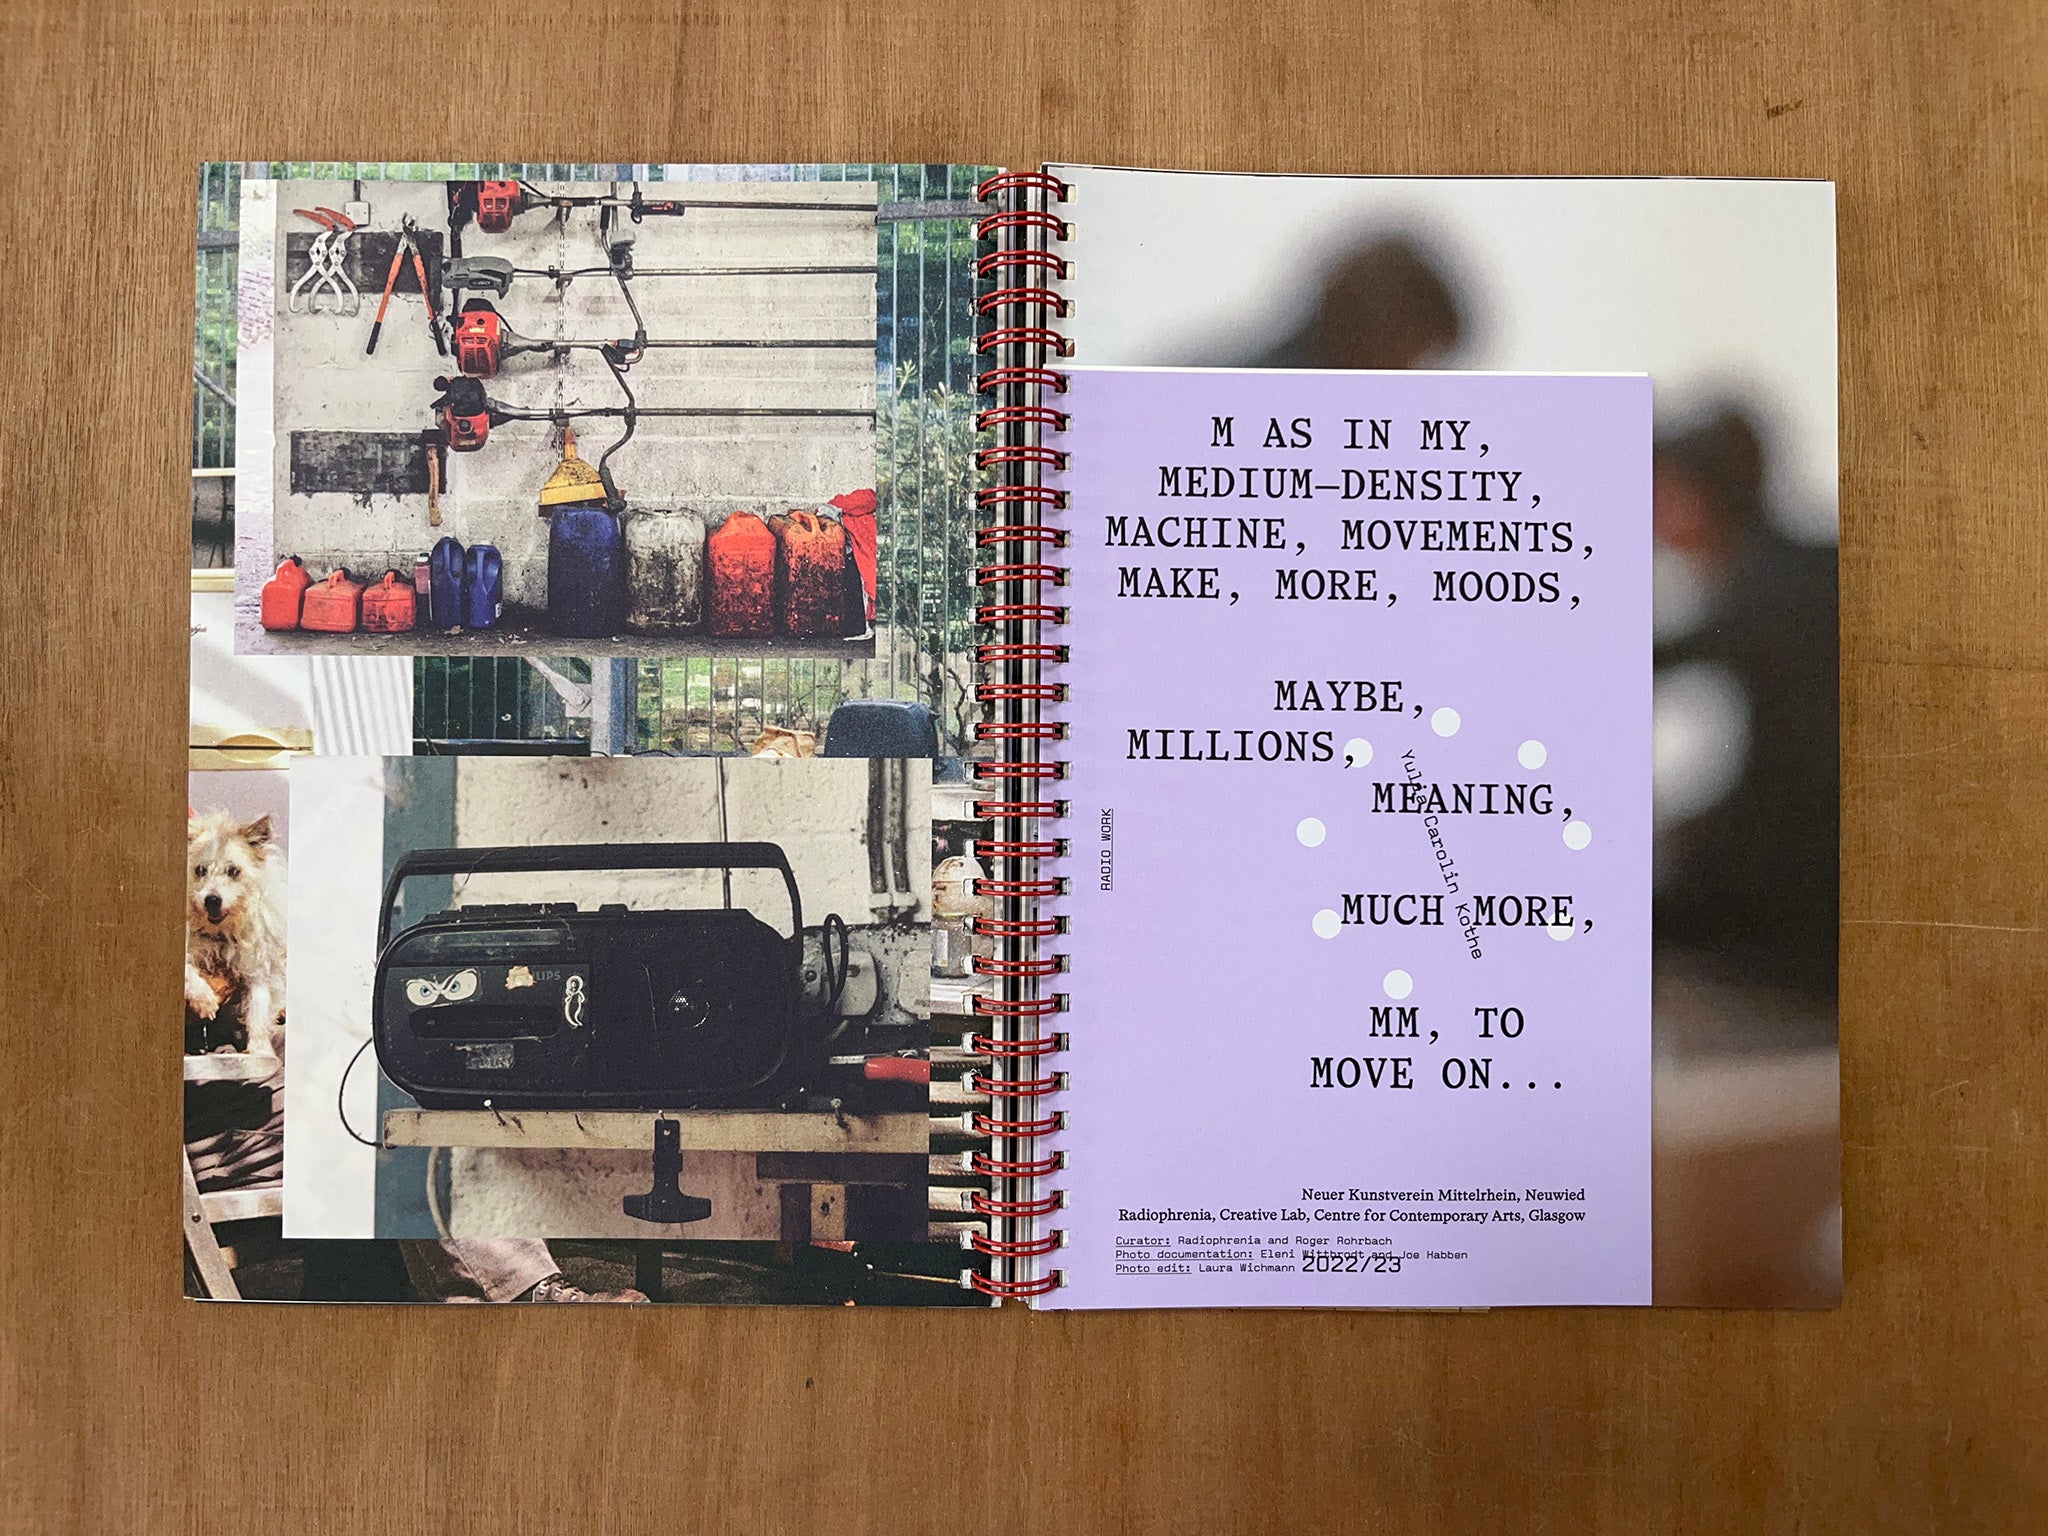 M AS IN MY,
MEDIUM—DENSITY,
MACHINE, MOVEMENTS,
MAKE, MORE, MOODS,
MAYBE,
MILLIONS,
MEANING,
MUCH MORE,
MM, TO
MOVE ON...
Yulia Carolin Kothe
RADIO WORK
Neuer Kunstverein Mittelrhein, Neuwied
Radiophrenia, Creative Lab, Centre for Contemporary Arts, Glasgow
Curator: Radiophrenia and Roger Rohrbach
Photo documentation: Eleni Wittbrodt and Joe Habben
Photo edit: Laura Wichmann
2022/23